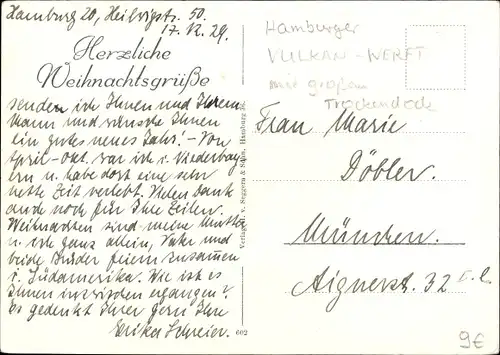 Hamburg 20, Heilwigstr. 50.
17. XII. 29.
Herzliche
Weihnachtsgrüße
senden ich Ihnen und Ihrem
Mann und wünsche Ihnen
ein gutes neues Jahr! - Von
April - Okt. war ich i. Niederbay
ern u. habe dort eine sehr
nette Zeit verlebt. Vielen Dank
auch noch für Ihre Zeilen.
Weihnachten sind meine Mutter
u. ich ganz allein, Vater und
beide Brüder feiern zusammen
i. Südamerika. Wie ist es
Ihnen inzwischen ergangen?
Es gedenkt Ihrer gern Ihre
Erika Schreier.
Verlag H. v. Seggern & Sohn, Hamburg
602
Hamburger
VULKAN-WERFT
mit großem
Trockendock
Frau Marie
Döbler.
München.
Aignerstr. 32
9€